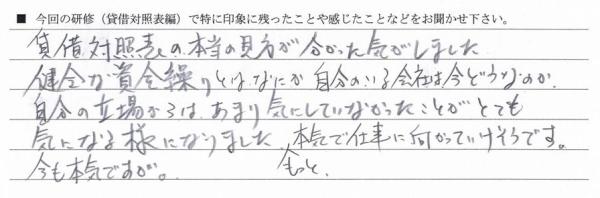 ■ 今回の研修（貸借対照表編）で特に印象に残ったことや感じたことなどをお聞かせ下さい。
貸借対照表の本当の見方が分かった気がしました
健全な資金繰りとはなにか 自分のいる会社は今どうなのか、
自分の立場からは、あまり気にしていなかったことがとても
気になる様になりました。本気で仕事に向かっていけそうです。
今も本気ですが。 もっと、